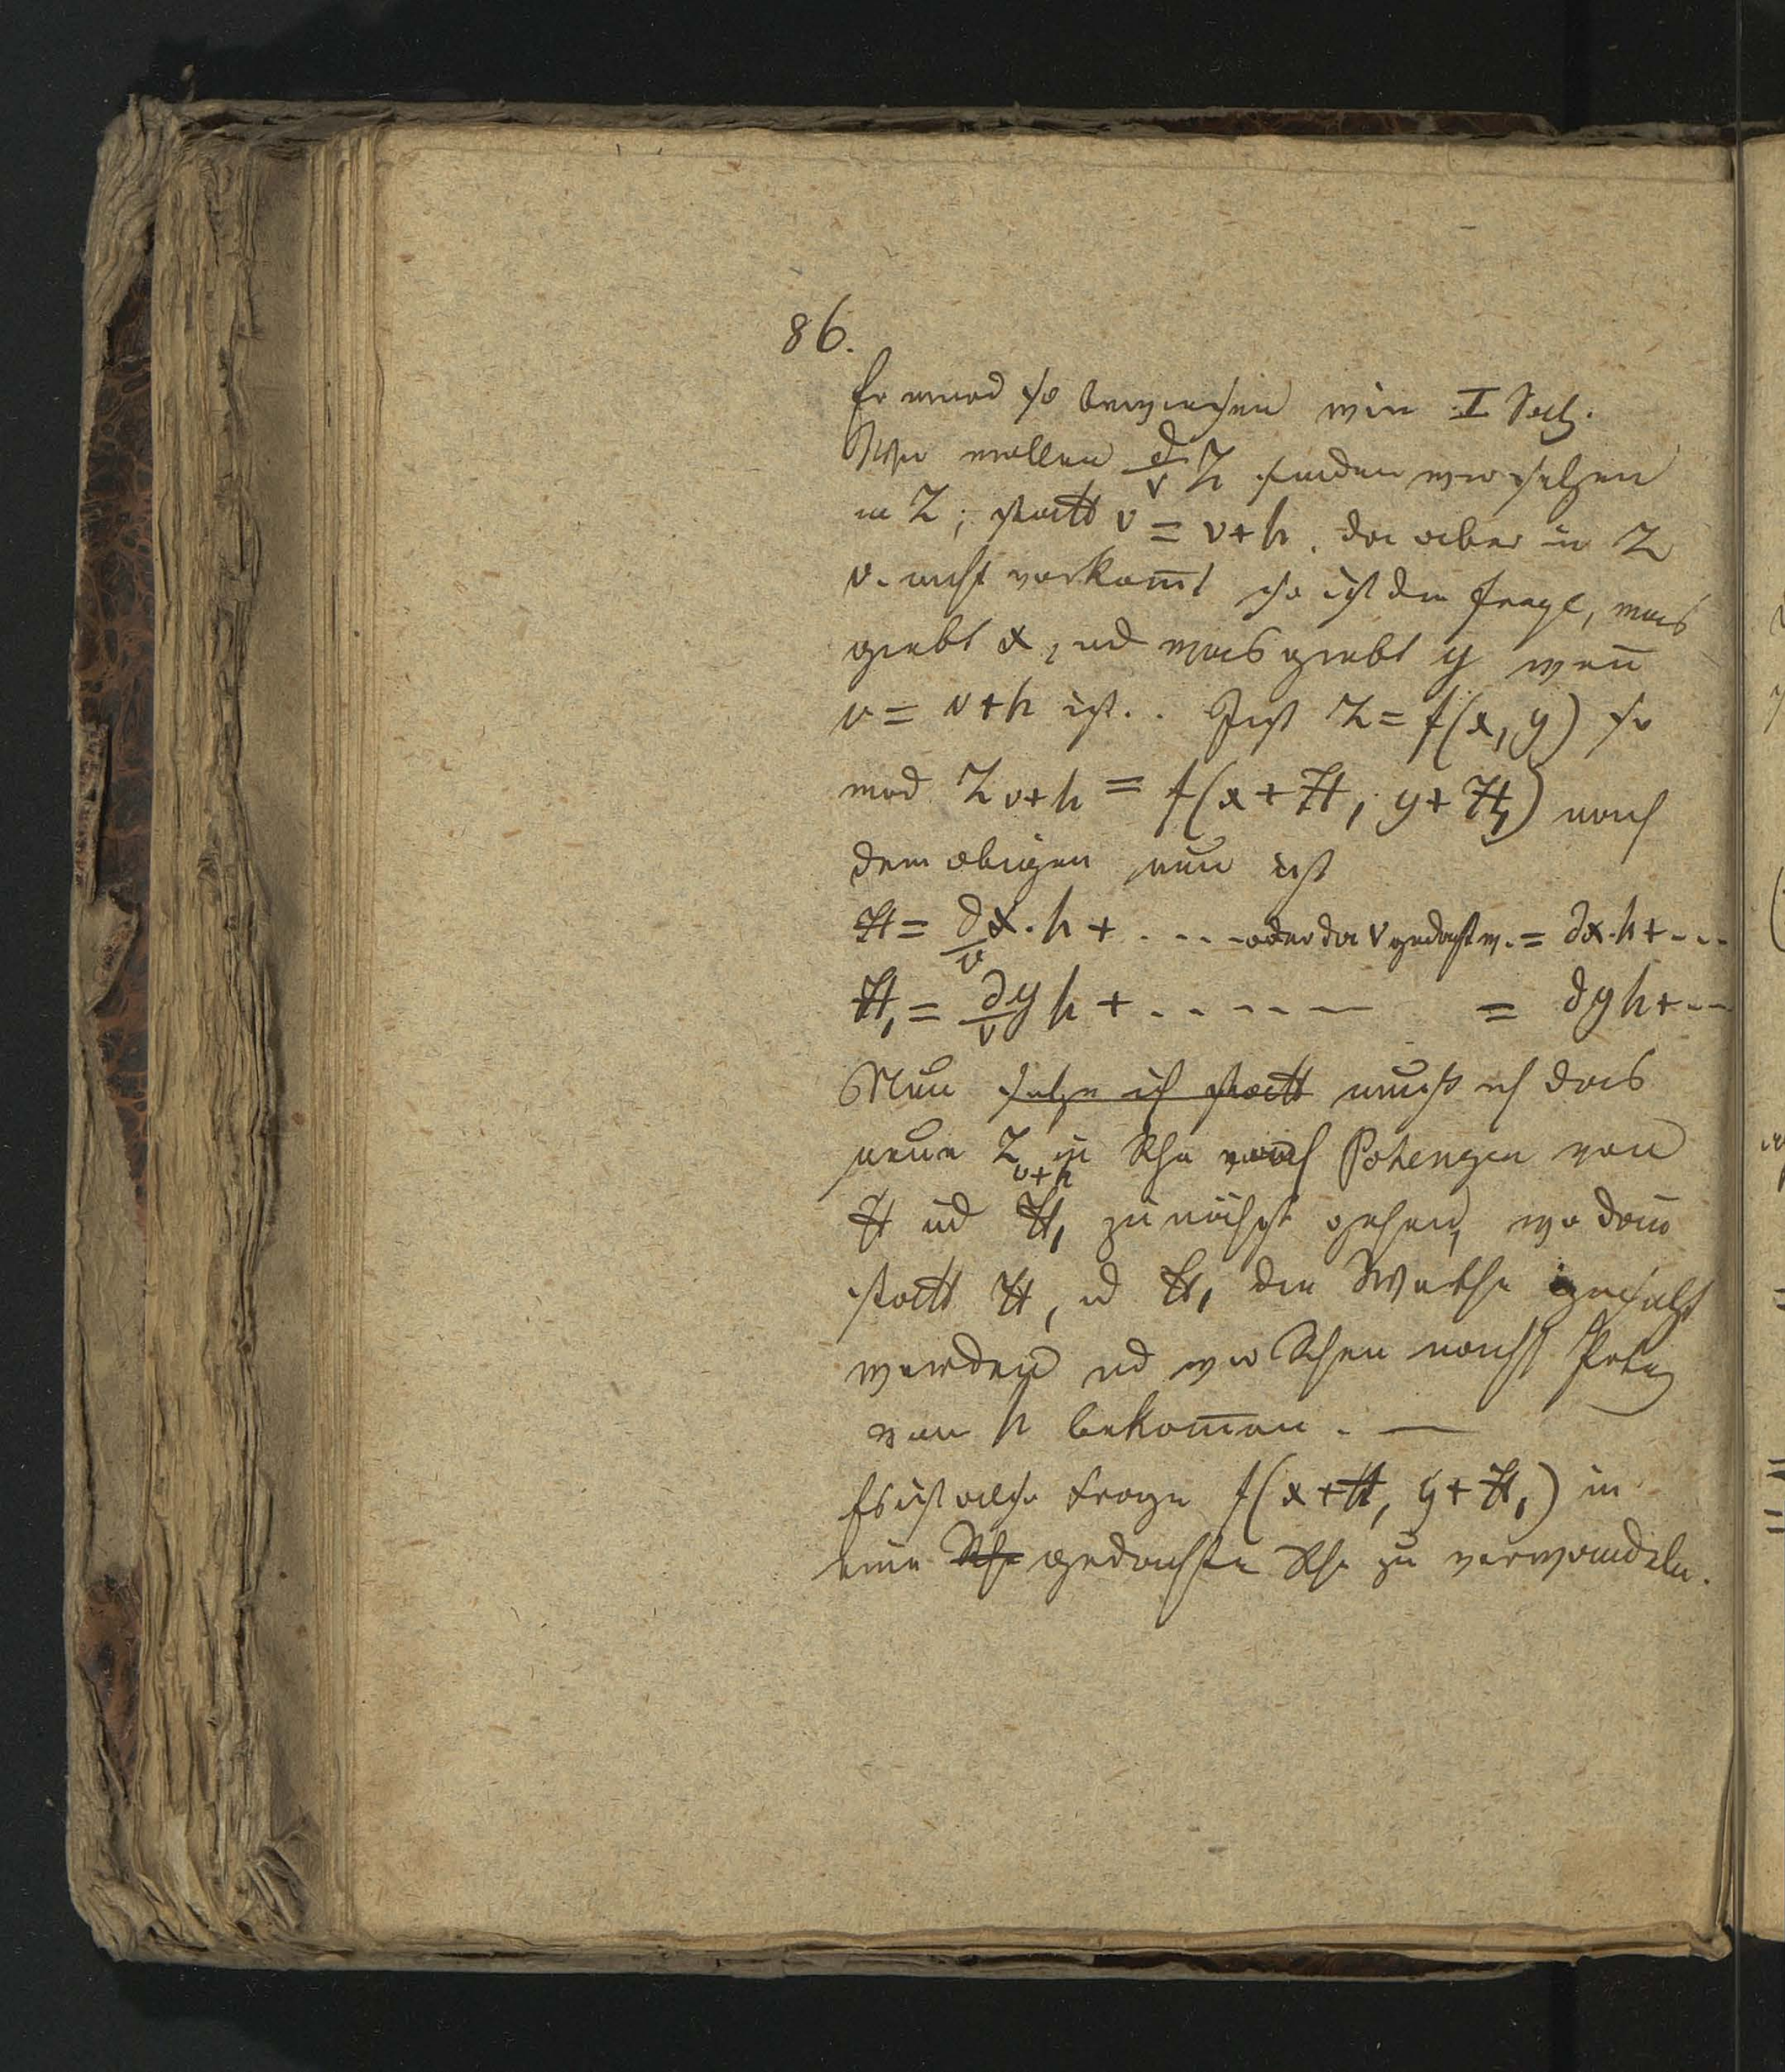 86.
Er wird so bewiesen wie I Satz.
Wir wollen ∂/v Z finden wir setzen
in Z; statt v = v+h. da aber in Z
v. nicht vorkom̅t so ist die Frage, was
giebt x, ud was giebt y wen̅
v = v+h ist.. Ist Z = f(x, y) so
wird Z v+h = f(x+H, y+H,) nach
dem obigen nun ist
H = ∂/v x. h + . . . . oder da v gedacht w. = ∂x. h + ...
H, = ∂/v y h + . . . . . = ∂y h + ...
Nun setze ich statt muß ich das
neue Z v+h in Rhe nach Potenzen von
H ud H, zu nächst gehen, wo dan̅
statt H, ud H, die Werthe gesetzt
werden ud wir Rhen nach Potenz
von h bekom̅en. —
Es ist also Frage f(x+H, y+H,) in
eine Rhe gedachte Rhe zu verwandeln.